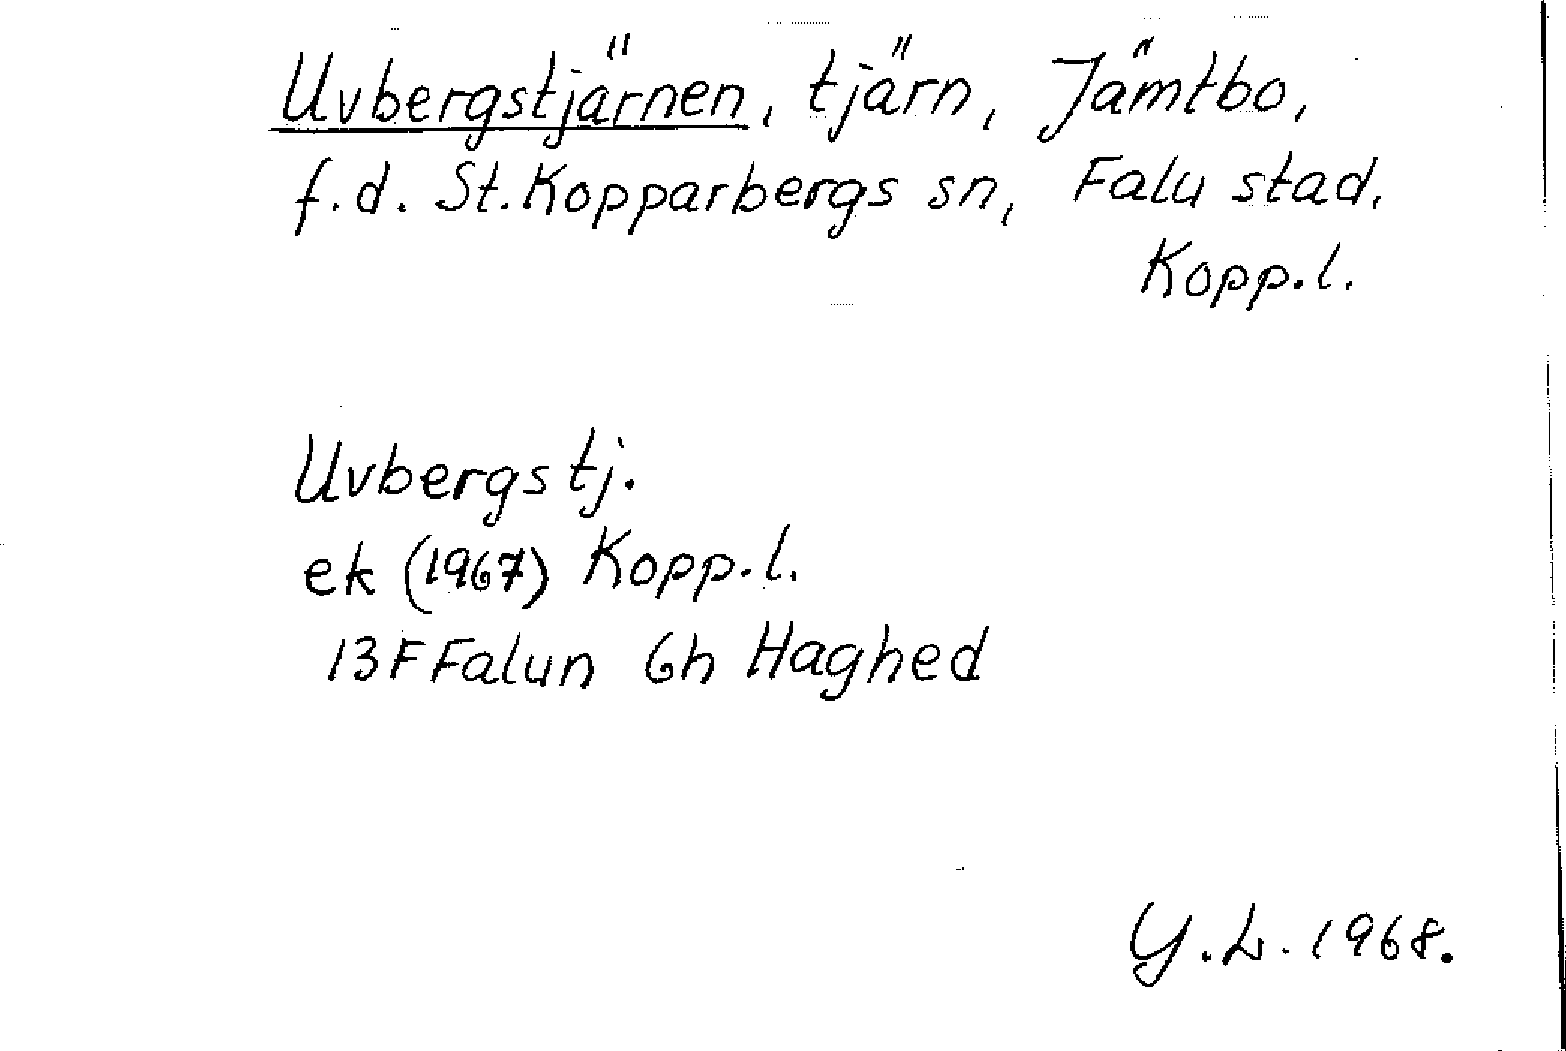 Uvbergstjärnen, tjärn, Jämtbo,
f.d. St. Kopparbergs sn, Falu stad.
Kopp.l.
Uvbergstj.
ek (1967) Kopp.l.
13F Falun 6h Haghed
Y.L. 1968.